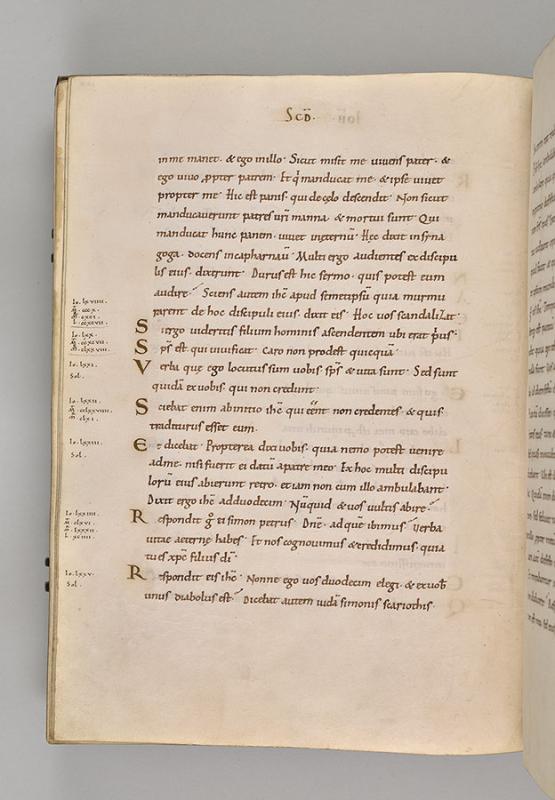 Scd̄.
in me manet · & ego in illo · Sicut misit me vivens pater · &
ego vivo ꝓpter patrem · Et q̇ manducat me · & ipse vivet
propter me · Hic est panis · qui de cęlo descendit · Non sicut
manducaverunt patres vr̄i manna · & mortui sunt · Qui
manducat hunc panem · vivet in ęternū · Hęc dixit in syna
goga · docens in capharnaū · Multi ergo audientes ex discipu
lis eius · dixerunt · Durus est hic sermo · quis potest eum
audire · Sciens autem ih̄c apud semetipsū quia murmu
rarent de hoc discipuli eius · dixit eis · Hoc vos scandalizat ·
Si ergo videritis filium hominis ascendentem ubi erat p̄us ·
Sp̄s est qui vivificat · Caro non prodest quicquā ·
Verba quę ego locutus sum vobis sp̄s & vita sunt · Sed sunt
quidā ex vobis · qui non credunt ·
Sciebat enim ab initio ih̄c qui e͞ent non credentes · & quis
traditurus esset eum ·
Et dicebat · Propterea dixi vobis · quia nemo potest venire
ad me · nisi fuerit ei datū a patre meo · Ex hoc multi discipu
lorū eius abierunt retro · et iam non cum illo ambulabant ·
Dixit ergo ih̄c ad duodecim · Nūquid & vos vultis abire ·
Respondit g̊ ei simon petrus · Dn̄e · ad quē ibimus · Verba
vitae aeternę habes · Et nos cognovimus & credidimus · quia
tu es xp̄c filius dī ·
Respondit eis ih̄c · Nonne ego vos duodecim elegi · & ex vob̄
unus diabolus est · Dicebat autem iudā simonis scariothis ·
Io. lxviiii.
Io. lxx.
Io. lxxi.
Sol.
Io. lxxii.
Io. lxxiii.
Sol.
Io. lxxiiii.
Io. lxxv.
Sol.